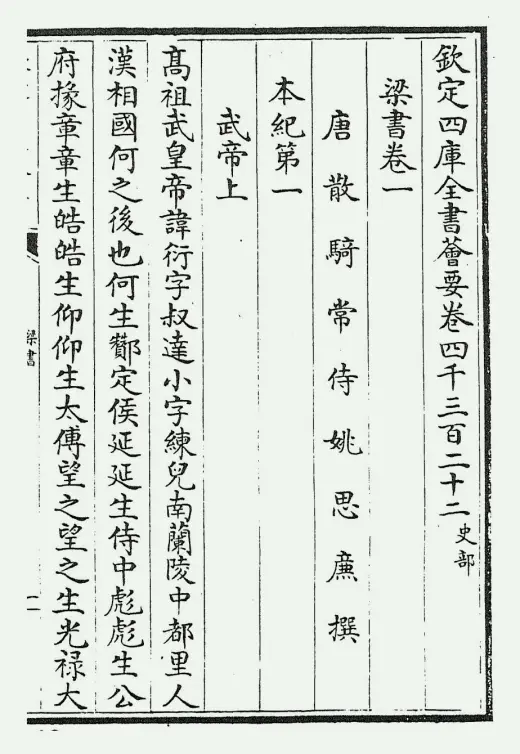 欽定四庫全書薈要卷四千三百二十二 史部
梁書卷一
唐散騎常侍姚思廉撰
本紀第一
武帝上
髙祖武皇帝諱衍字叔達小字練兒南蘭陵中都里人
漢相國何之後也何生酇定侯延延生侍中彪彪生公
府掾章章生皓皓生仰仰生太傅望之望之生光禄大
梁書